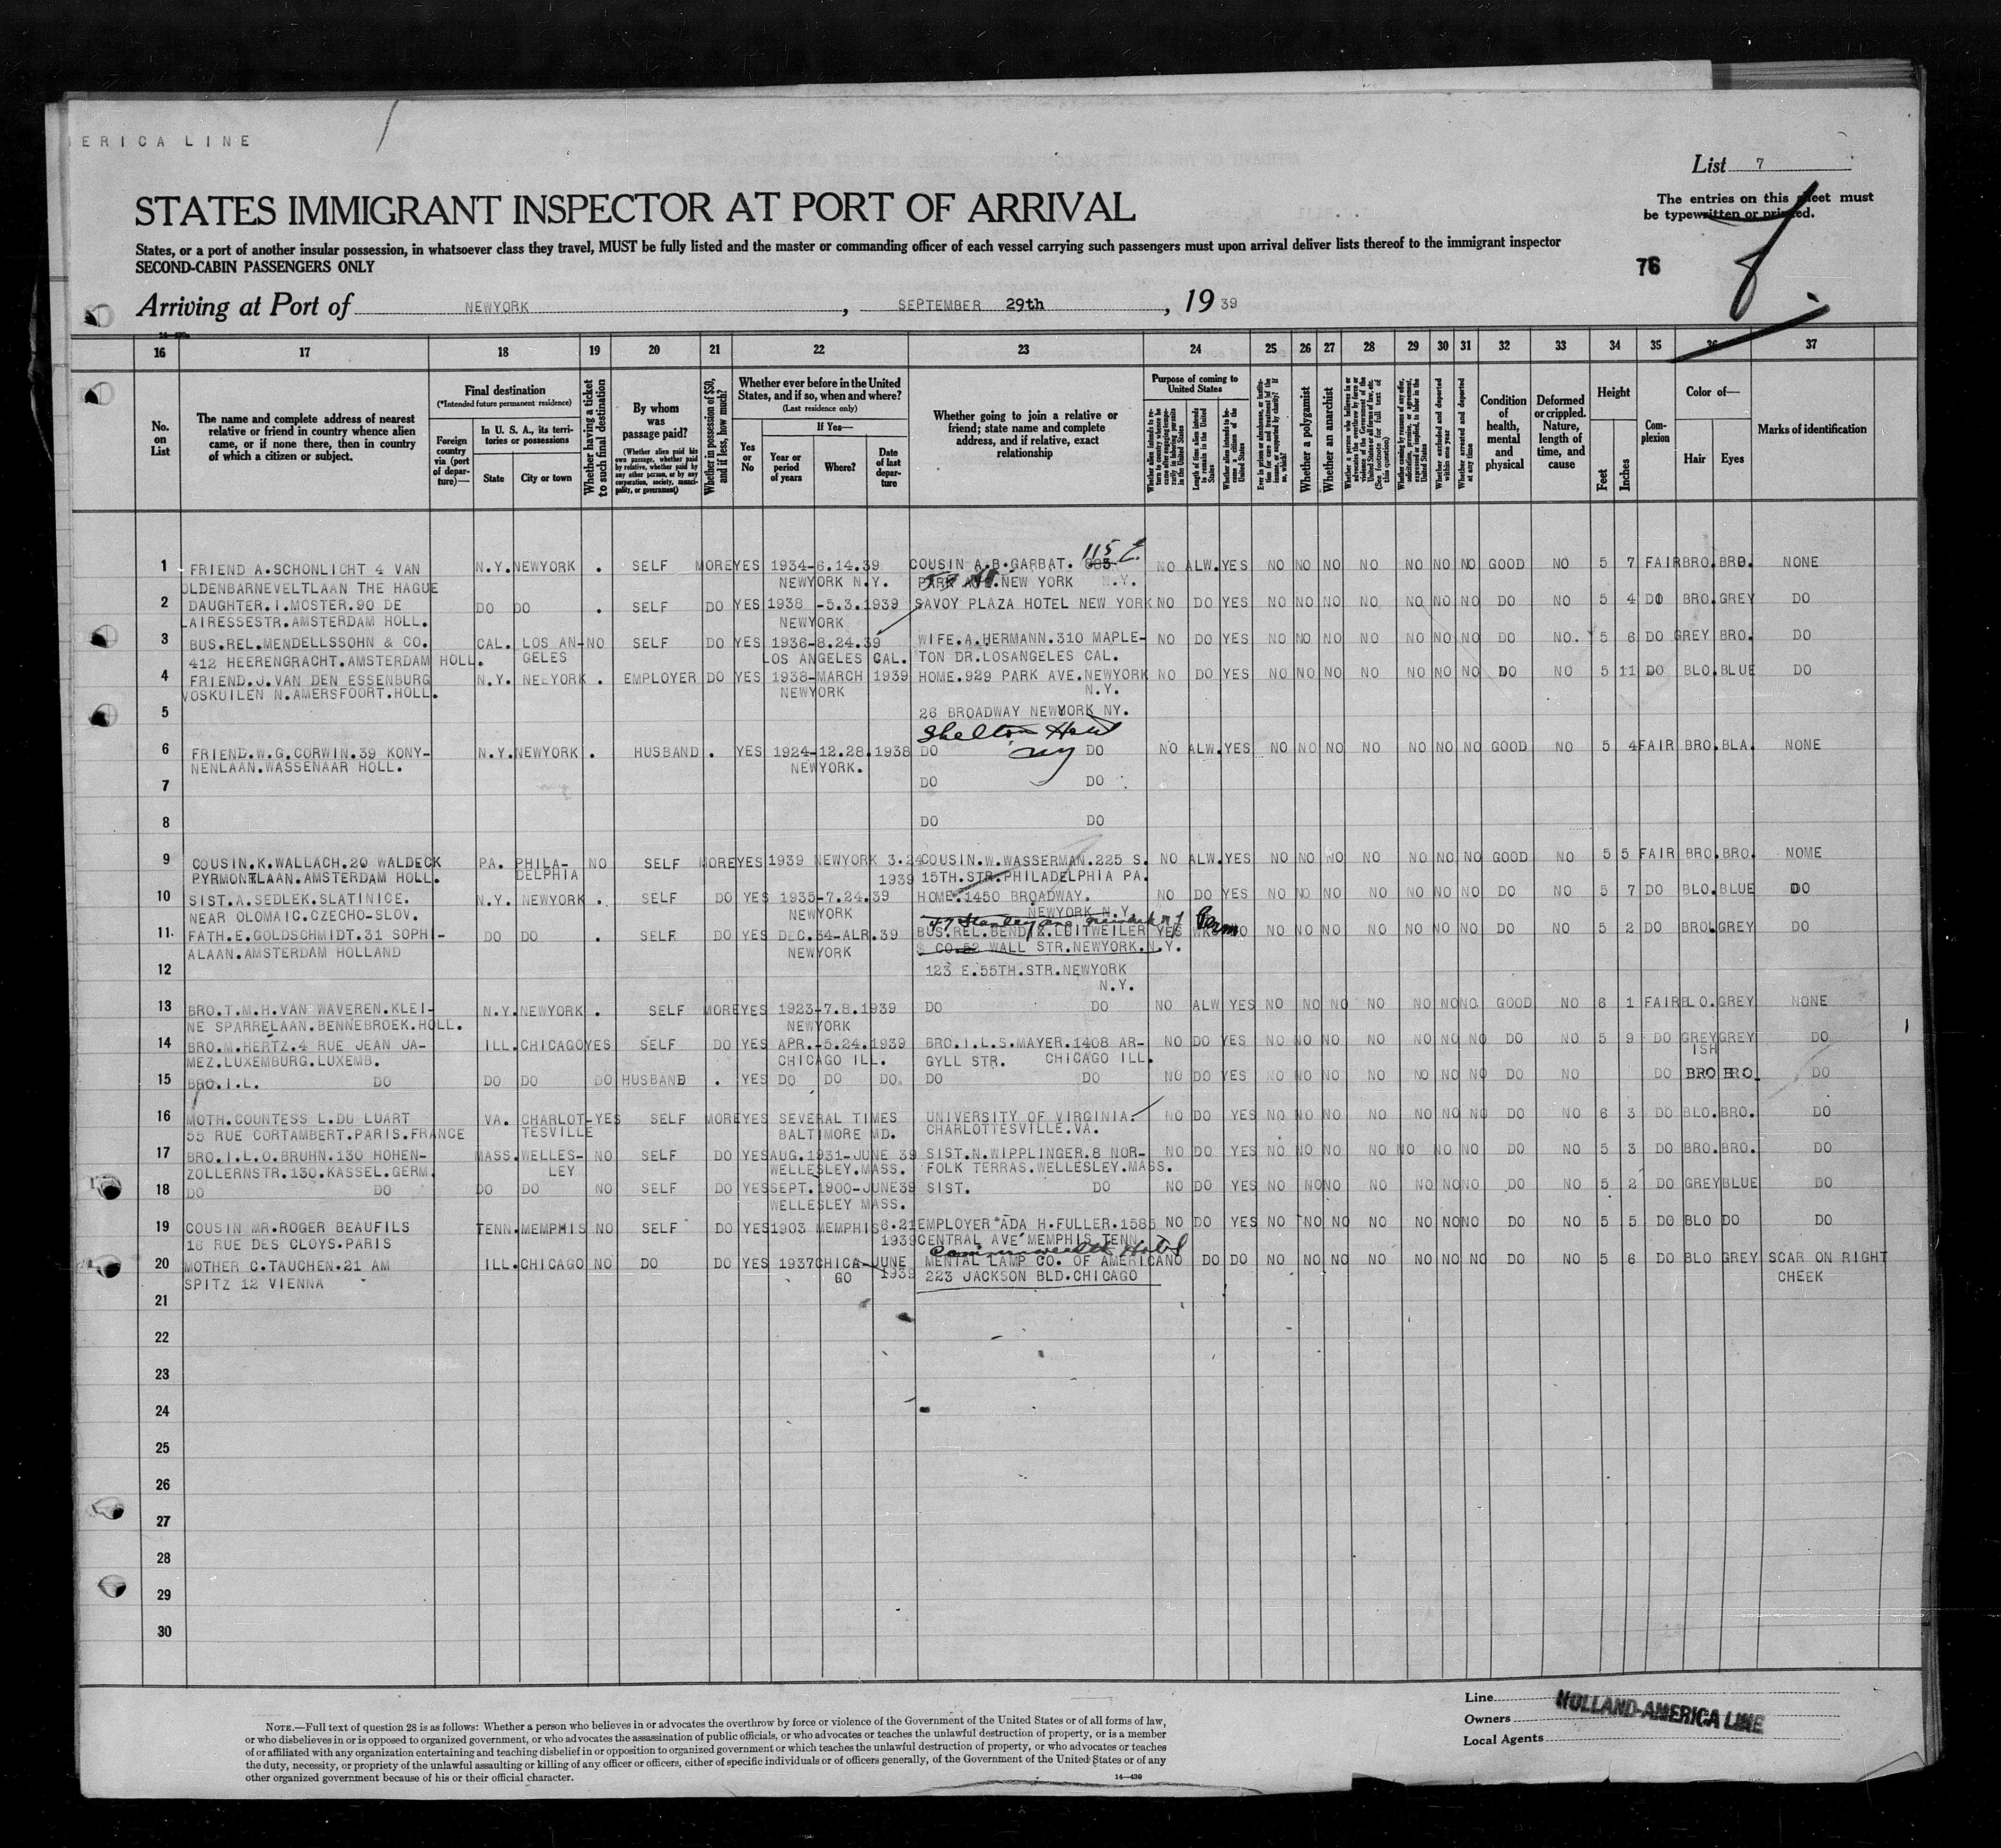 ERICA LINE
List 7
STATES IMMIGRANT INSPECTOR AT PORT OF ARRIVAL
The entries on this sheet must
be typewritten or printed.
States, or a port of another insular possession, in whatsoever class they travel, MUST be fully listed and the master or commanding officer of each vessel carrying such passengers must upon arrival deliver lists thereof to the immigrant inspector
SECOND-CABIN PASSENGERS ONLY
76
Arriving at Port of NEWYORK, SEPTEMBER 29th, 1939
16 17 18 19 20 21 22 23 24 25 26 27 28 29 30 31 32 33 34 35 36 37
No. on List
The name and complete address of nearest relative or friend in country whence alien came, or if none there, then in country of which a citizen or subject.
Final destination
(*Intended future permanent residence)
Foreign country via (port of departure)—
In U. S. A., its territories or possessions
State
City or town
Whether having a ticket to such final destination
By whom was passage paid?
(Whether alien paid his own passage, whether paid by relative, whether paid by any other person, or by any corporation, society, municipality, or government)
Whether in possession of $50, and if less, how much?
Whether ever before in the United States, and if so, when and where?
(Last residence only)
Yes or No
If Yes—
Year or period of years
Where?
Date of last departure
Whether going to join a relative or friend; state name and complete address, and if relative, exact relationship
Purpose of coming to United States
Length of time alien intends to remain in the United States
Whether alien intends to become a citizen of the United States
Whether a polygamist
Whether an anarchist
Whether excluded and deported within one year
Whether arrested and deported at any time
Condition of health, mental and physical
Deformed or crippled. Nature, length of time, and cause
Height
Feet
Inches
Complexion
Color of—
Hair
Eyes
Marks of identification
115 E.
1 FRIEND A.SCHONLICHT 4 VAN N.Y. NEWYORK . SELF MORE YES 1934-6.14.39 COUSIN A.B.GARBAT. 883 NO ALW. YES NO NO NO NO NO NO NO GOOD NO 5 7 FAIR BRO. BRO. NONE
OLDENBARNEVELTLAAN THE HAGUE NEWYORK N.Y. PARK AVE.NEW YORK N.Y.
2 DAUGHTER.I.MOSTER.90 DE DO DO . SELF DO YES 1938 -5.3.1939 SAVOY PLAZA HOTEL NEW YORK NO DO YES NO NO NO NO NO NO NO DO NO 5 4 DO BRO. GREY DO
LAIRESSESTR.AMSTERDAM HOLL. NEWYORK
3 BUS.REL.MENDELLSSOHN & CO. CAL. LOS AN- NO SELF DO YES 1936-8.24.39 WIFE.A.HERMANN.310 MAPLE- NO DO YES NO NO NO NO NO NO NO DO NO. 5 6 DO GREY BRO. DO
412 HEERENGRACHT.AMSTERDAM HOLL. GELES LOS ANGELES CAL. TON DR.LOSANGELES CAL.
4 FRIEND.J.VAN DEN ESSENBURG N.Y. NEEYORK . EMPLOYER DO YES 1938-MARCH 1939 HOME.929 PARK AVE.NEWYORK NO DO YES NO NO NO NO NO NO NO DO NO 5 11 DO BLO. BLUE DO
VOSKUILEN N.AMERSFOORT.HOLL. NEWYORK N.Y.
5 26 BROADWAY NEWYORK NY.
Shelton Hotel
NY
6 FRIEND.W.G.CORWIN.39 KONY- N.Y. NEWYORK . HUSBAND . YES 1924-12.28.1938 DO DO NO ALW. YES NO NO NO NO NO NO NO GOOD NO 5 4 FAIR BRO. BLA. NONE
NENLAAN.WASSENAAR HOLL. NEWYORK.
7 DO DO
8 DO DO
9 COUSIN.K.WALLACH.20 WALDECK PA. PHILA- NO SELF MORE YES 1939 NEWYORK 3.24 COUSIN.W.WASSERMAN.225 S. NO ALW. YES NO NO NO NO NO NO NO GOOD NO 5 5 FAIR BRO. BRO. NOME
PYRMONTLAAN.AMSTERDAM HOLL. DELPHIA 1939 15TH.STR.PHILADELPHIA PA.
10 SIST.A.SEDLEK.SLATINICE. N.Y. NEWYORK . SELF DO YES 1935-7.24.39 HOME.1450 BROADWAY. NO DO YES NO NO NO NO NO NO NO DO NO 5 7 DO BLO. BLUE DO
NEAR OLOMAIC.CZECHO-SLOV. NEWYORK NEWYORK N.Y.
11 FATH.E.GOLDSCHMIDT.31 SOPHI- DO DO . SELF DO YES DEC.34-ALR.39 BUS.REL.BENDIX.LUITWEILER YES NO NO NO NO NO NO NO DO NO 5 2 DO BRO. GREY DO
ALAAN.AMSTERDAM HOLLAND NEWYORK & CO.52 WALL STR.NEWYORK.N.Y.
12 123 E.55TH.STR.NEWYORK
N.Y.
13 BRO.T.M.H.VAN WAVEREN.KLEI- N.Y. NEWYORK . SELF MORE YES 1923-7.8.1939 DO DO NO ALW YES NO NO NO NO NO NO NO. GOOD NO 6 1 FAIR BLO. GREY NONE
NE SPARRELAAN.BENNEBROEK.HOLL. NEWYORK
14 BRO.M.HERTZ.4 RUE JEAN JA- ILL. CHICAGO YES SELF DO YES APR.-5.24.1939 BRO.I.L.S.MAYER.1408 AR- NO DO YES NO NO NO NO NO NO NO DO NO 5 9 DO GREY GREY DO
MEZ.LUXEMBURG.LUXEMB. CHICAGO ILL. GYLL STR. CHICAGO ILL. ISH
15 BRO.I.L. DO DO DO DO HUSBAND . YES DO DO DO. DO DO NO DO YES NO NO NO NO NO NO NO DO NO DO BRO BRO. DO
16 MOTH.COUNTESS L.DU LUART VA. CHARLOT- YES SELF MORE YES SEVERAL TIMES UNIVERSITY OF VIRGINIA. NO DO YES NO NO NO NO NO NO NO DO NO 6 3 DO BLO. BRO. DO
55 RUE CORTAMBERT.PARIS.FRANCE TESVILLE BALTIMORE MD. CHARLOTTESVILLE.VA.
17 BRO.I.L.O.BRUHN.130 HOHEN- MASS. WELLES- NO SELF DO YES AUG.1931-JUNE 39 SIST.N.WIPPLINGER.8 NOR- NO DO YES NO NO NO NO NO NO NO DO NO 5 3 DO BRO. BRO. DO
ZOLLERNSTR.130.KASSEL.GERM. LEY WELLESLEY.MASS. FOLK TERRAS.WELLESLEY.MASS.
18 DO DO DO DO NO SELF DO YES SEPT.1900-JUNE39 SIST. DO NO DO YES NO NO NO NO NO NO NO DO NO 5 2 DO GREY BLUE DO
WELLESLEY MASS.
19 COUSIN MR.ROGER BEAUFILS TENN. MEMPHIS NO SELF DO YES 1903 MEMPHIS 6.21 EMPLOYER ADA H.FULLER.1585 NO DO YES NO NO NO NO NO NO NO DO NO 5 5 DO BLO DO DO
16 RUE DES CLOYS.PARIS 1939 CENTRAL AVE MEMPHIS TENN.
Commonwealth Hotel
20 MOTHER C.TAUCHEN.21 AM ILL. CHICAGO NO DO DO YES 1937 CHICA- JUNE MENTAL LAMP CO. OF AMERICA NO DO DO NO NO NO NO NO NO NO DO NO 5 6 DO BLO GREY SCAR ON RIGHT
SPITZ 12 VIENNA GO 1939 223 JACKSON BLD.CHICAGO CHEEK
21
22
23
24
25
26
27
28
29
30
Line HOLLAND-AMERICA LINE
Owners
Local Agents
NOTE.—Full text of question 28 is as follows: Whether a person who believes in or advocates the overthrow by force or violence of the Government of the United States or of all forms of law,
or who disbelieves in or is opposed to organized government, or who advocates the assassination of public officials, or who advocates or teaches the unlawful destruction of property, or is a member
of or affiliated with any organization entertaining and teaching disbelief in or opposition to organized government or which teaches the unlawful destruction of property, or who advocates or teaches
the duty, necessity, or propriety of the unlawful assaulting or killing of any officer or officers, either of specific individuals or of officers generally, of the Government of the United States or of any
other organized government because of his or their official character.
14—430